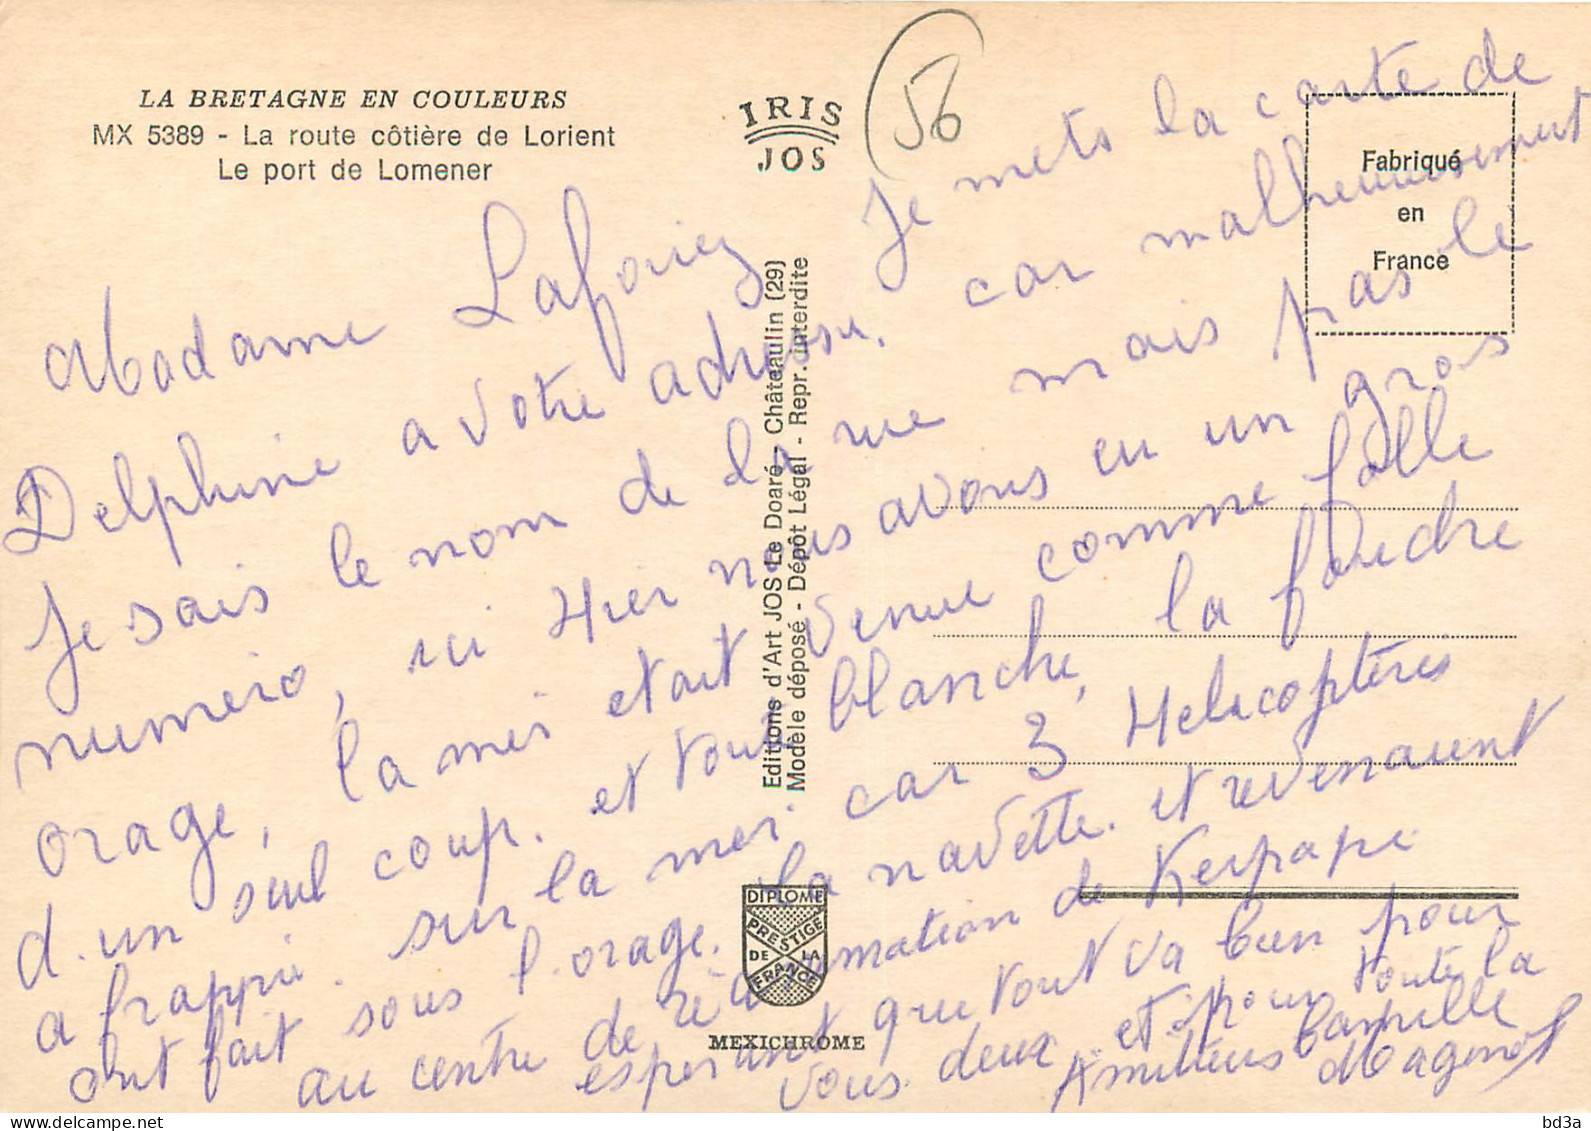 LA BRETAGNE EN COULEURS
MX 5389 - La route côtière de Lorient
Le port de Lomener
IRIS
JOS
56
Fabriqué
en
France
Editions d'Art JOS Le Doaré - Châteaulin (29)
Modèle déposé - Dépôt Légal - Repr. interdite
DIPLOME
PRESTIGE
DE LA
FRANCE
MEXICHROME
Madame Je mets la carte de
Delphine a votre adresse. car malheureusement
Je sais le nom de la rue mais pas le
numero, ici Hier nous avons eu un gros
orage, la mer etait venue comme folle
d. un seul coup. et toute blanche, la foudre
a frappée. sur la mer. car 3 Helicoptères
ont fait sous l.orage. la navette. et revenaient
au centre de réanimation de Kerpape
esperant que tout va bien pour
vous. deux. et. pour toute la
famille
Amitiés